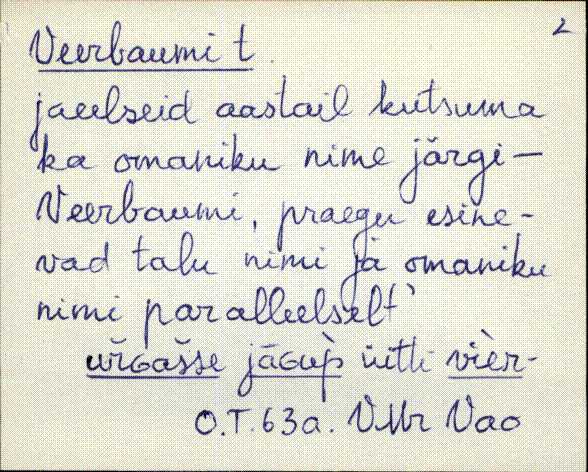 2
Veerbaumi t.
jaeelseid aastail kutsuma
ka omaniku nime järgi –
Veerbaumi, praegu esine-
vad talu nimi ja omaniku
nimi paralleelselt'
jǟɢup̀ üitti vìer-
O.T. 63a. VMr Vao